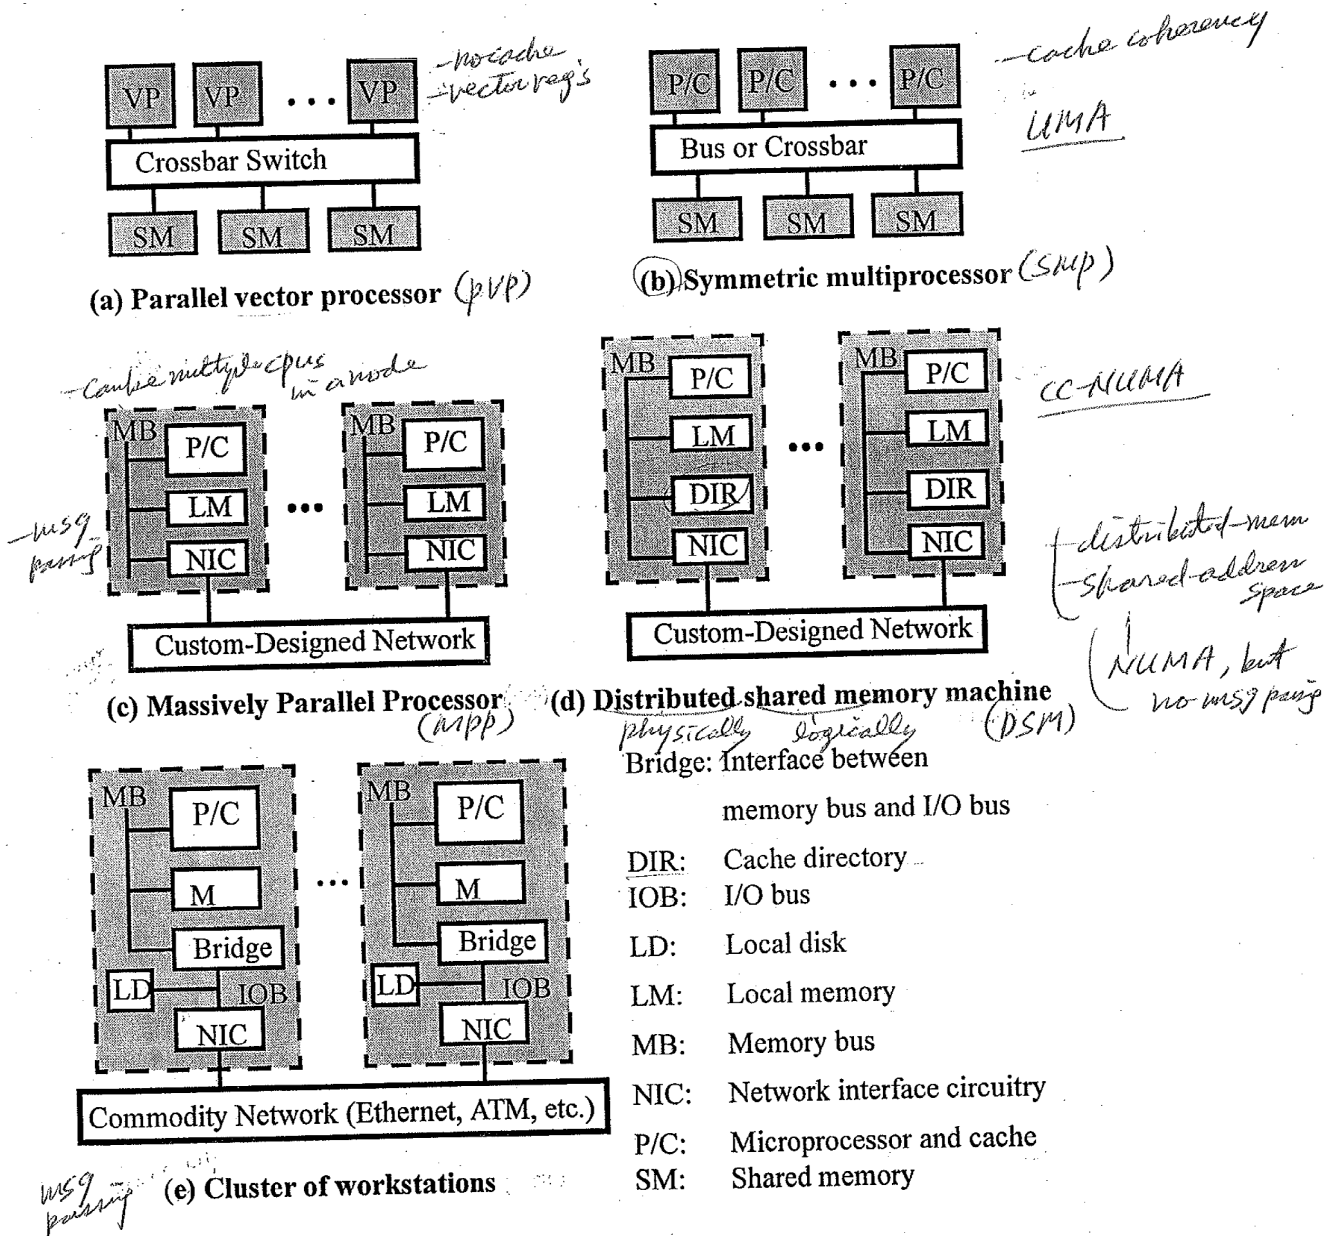 VP VP • • • VP
-no cache
-vector reg's
Crossbar Switch
SM SM SM
(a) Parallel vector processor (PVP)
P/C P/C • • • P/C
-cache coherency
UMA
Bus or Crossbar
SM SM SM
(b) Symmetric multiprocessor (SMP)
-can be multiple cpus
in a node
MB P/C MB P/C
LM ••• LM
NIC NIC
-msg
passing
Custom-Designed Network
(c) Massively Parallel Processor
(MPP)
MB P/C MB P/C
LM ••• LM
DIR DIR
NIC NIC
CC-NUMA
-distributed-mem
-shared-address
space
NUMA, but
no msg passing
Custom-Designed Network
(d) Distributed shared memory machine
physically logically (DSM)
MB P/C MB P/C
M ••• M
Bridge Bridge
LD IOB LD IOB
NIC NIC
Commodity Network (Ethernet, ATM, etc.)
msg
passing
(e) Cluster of workstations
Bridge: Interface between
memory bus and I/O bus
DIR: Cache directory
IOB: I/O bus
LD: Local disk
LM: Local memory
MB: Memory bus
NIC: Network interface circuitry
P/C: Microprocessor and cache
SM: Shared memory